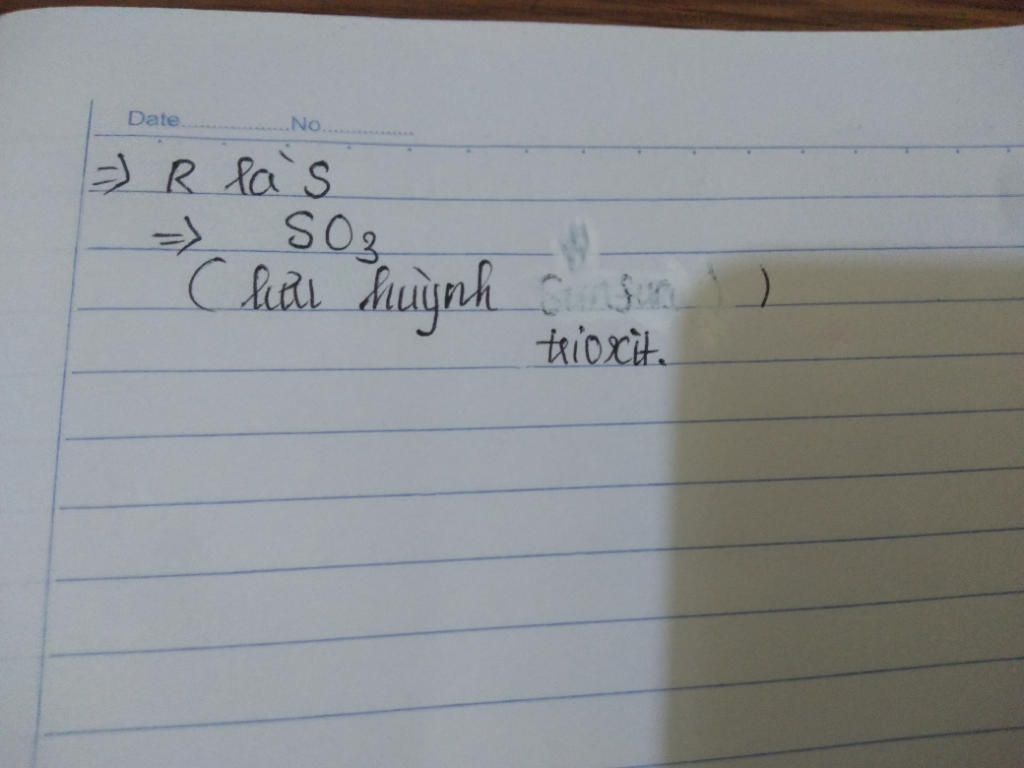 Date..................No...............
=> R là S
=> SO₃
( lưu huỳnh )
trioxit.